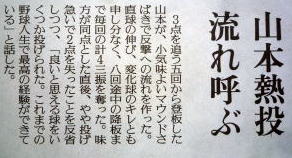 山本熱投
流れ呼ぶ
３点を追う五回から登板した
山本が、小気味よいマウンドさ
ばきで反撃への流れを作った。
直球の伸び、変化球のキレとも
申し分なく、八回途中の降板ま
で毎回の計４三振を奪った。味
方が同点とした直後、やや投げ
急いで２点を失ったことを反省
しつつ、「良いと思える球をい
くつも投げられた。これまでの
野球人生で最高の経験ができて
いる」と話した。